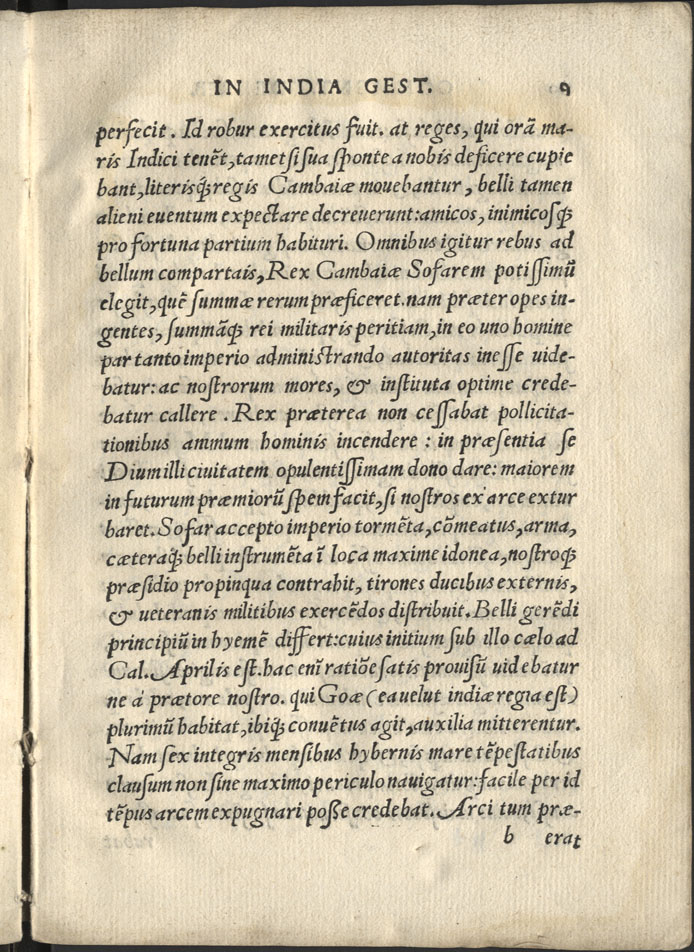 IN INDIA GEST. 9
perfecit. Id robur exercitus fuit. at reges, qui orã ma-
ris Indici tenẽt, tametsi sua sponte a nobis deficere cupie
bant, literisq́; regis Cambaiæ mouebantur, belli tamen
alieni euentum expectare decreuerunt: amicos, inimicosq́;
pro fortuna partium habituri. Omnibus igitur rebus ad
bellum compartais, Rex Cambaiæ Sofarem potissimũ
elegit, quẽ summæ rerum præficeret. nam præter opes in-
gentes, summãq́; rei militaris peritiam, in eo uno homine
par tanto imperio administrando autoritas inesse uide-
batur: ac nostrorum mores, & instituta optime crede-
batur callere. Rex præterea non cessabat pollicita-
tionibus animum hominis incendere: in præsentia se
Dium illi ciuitatem opulentissimam dono dare: maiorem
in futurum præmiorũ spem facit, si nostros ex arce extur
baret. Sofar accepto imperio tormẽta, cõmeatus, arma,
cæteraq́; belli instrumẽta ĩ loca maxime idonea, nostroq́;
præsidio propinqua contrahit, tirones ducibus externis,
& ueteranis militibus exercẽdos distribuit. Belli gerẽdi
principiũ in hyemẽ differt: cuius initium sub illo cælo ad
Cal. Aprilis est. hac enĩ ratiõe satis prouisũ uidebatur
ne á prætore nostro. qui Goæ (ea uelut indiæ regia est)
plurimũ habitat, ibiq́; conuẽtus agit, auxilia mitterentur.
Nam sex integris mensibus hybernis mare tẽpestatibus
clausum non sine maximo periculo nauigatur: facile per id
tẽpus arcem expugnari posse credebat. Arci tum præ-
b erat